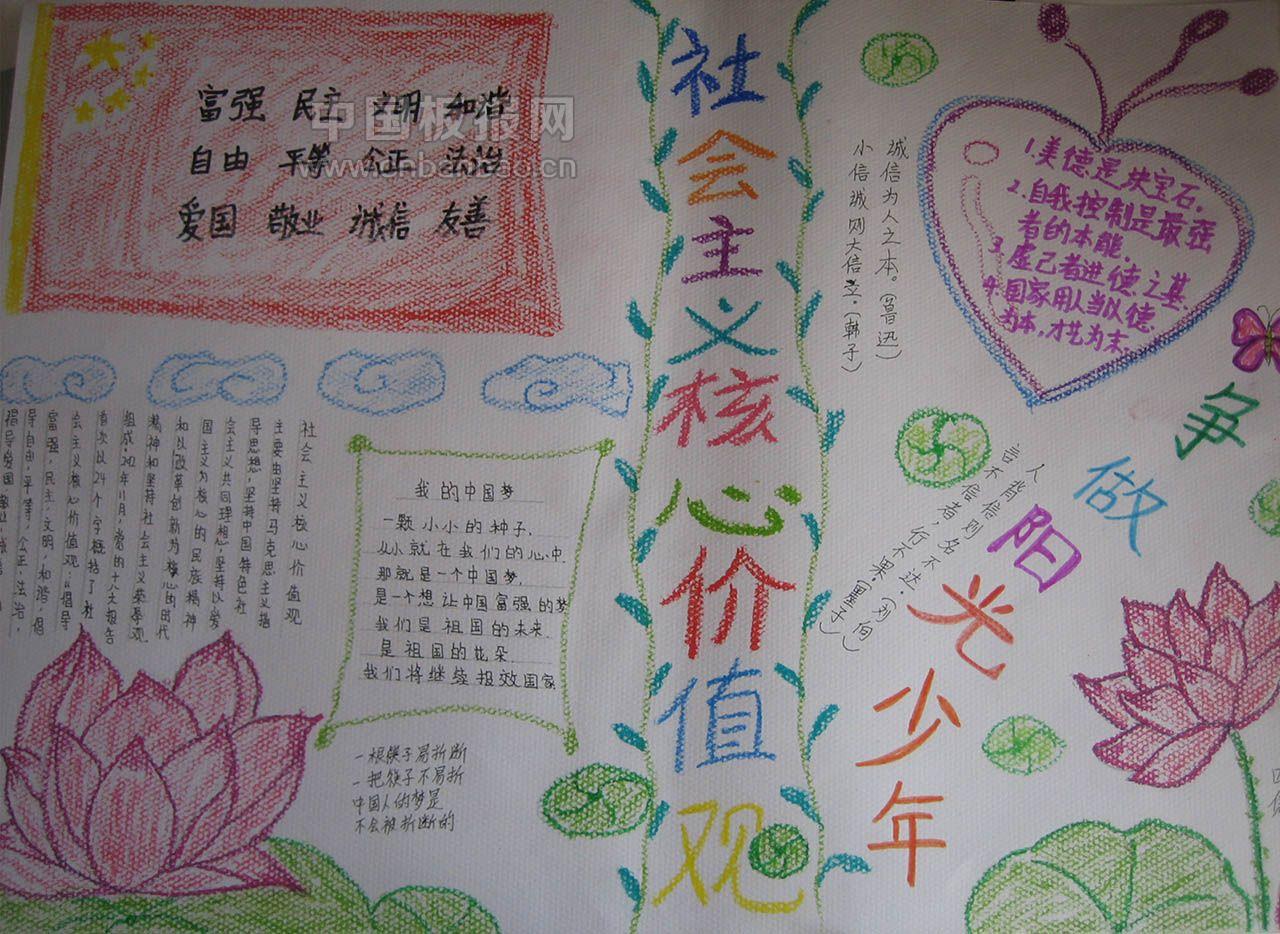 富强 民主 文明 和谐
自由 平等 公正 法治
爱国 敬业 诚信 友善
中国板报网
社会主义核心价值观
社会主义核心价值观
主要由坚持马克思主义指
导思想，坚持中国特色社
会主义共同理想，坚持以爱
国主义为核心的民族精神
和以改革创新为核心的时代
精神和坚持社会主义荣辱观
组成。2012年11月，党的十八大报告
首次以24个字概括了社
会主义核心价值观："倡导
富强，民主，文明，和谐，倡
导自由，平等，公正，法治，
倡导爱国
我的中国梦
一颗小小的种子，
从小就在我们的心中
那就是一个中国梦，
是一个想让中国富强的梦
我们是祖国的未来
是祖国的花朵
我们将继续报效国家
一根筷子易折断
一把筷子不易折
中国人的梦是
不会被折断的
诚信为人之本。（鲁迅）
小信诚则大信立。（韩子）
1.美德是块宝石。
2.自我控制是最强
者的本能。
3.虚己者进德之基
4.国家用人当以德
为本，才艺为末
人背信则名不达。（刘向）
言不信者，行不果。（墨子）
争做阳光少年